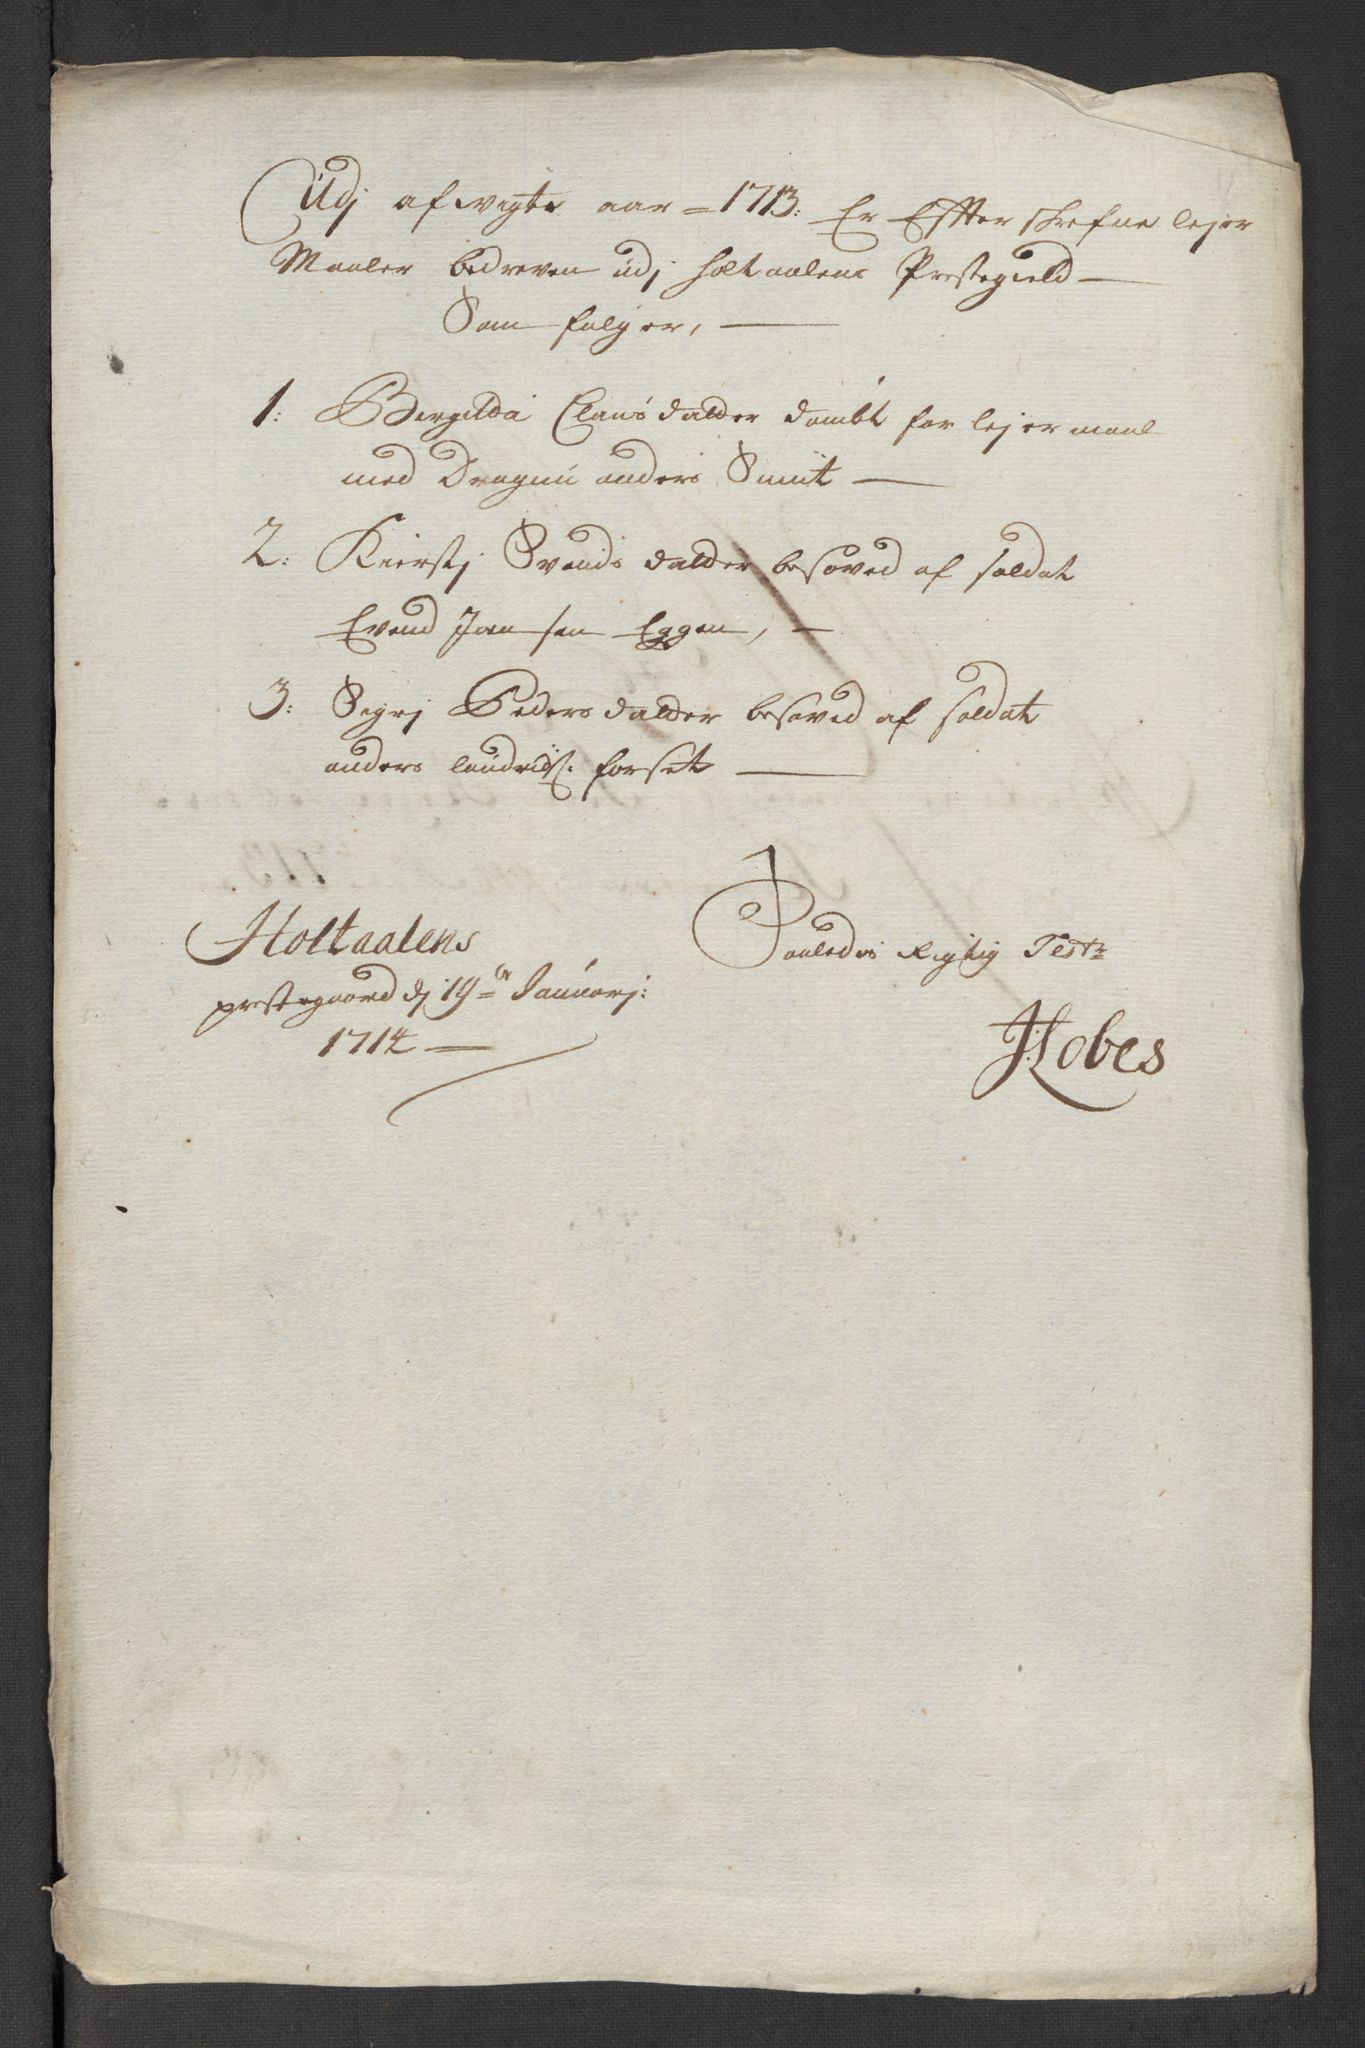 Udj afvigte aar = 1713: Er Effterschrefne lejer
Maaler bedreven udj holtaalens Prestegield
Som følger,
1: Bergitta Clausdatter dømbt for lejermaal
med Dragun anders Smit
2: Kiersti Svends datter besøved af soldat
Evend Joensen Eggen,
3: Segrj Peders datter besøved af soldat
anders lauridß: forset
Holtaalens
prestegaard dj 19de Januarj:
1714
Saaledis Rigtig Test:
JHobes